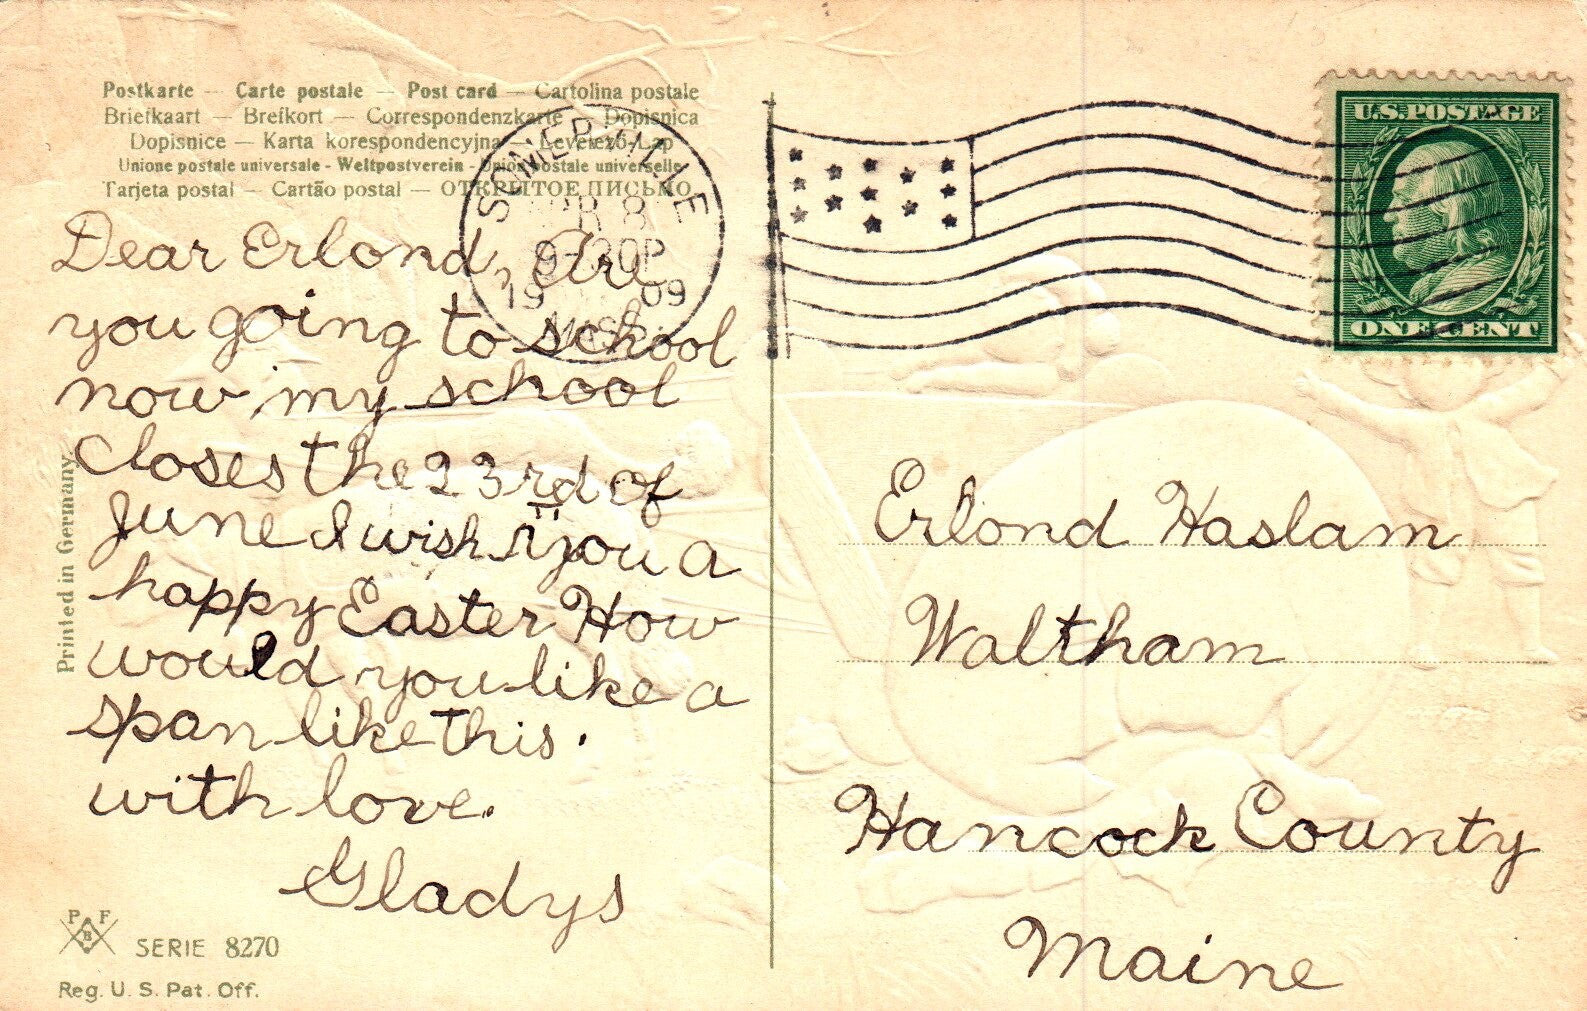 Postkarte — Carte postale — Post card — Cartolina postale
Briefkaart — Brefkort — Correspondenzkarte — Dopisnica
Dopisnice — Karta korespondencyjna — Levelező-Lap
Unione postale universale - Weltpostverein - Union postale universelle
Tarjeta postal — Cartão postal — ОТКРЫТОЕ ПИСЬМО
SOMERVILLE
APR 8
9-30P
1909
MASS.
U.S. POSTAGE
ONE CENT
Dear Erlond, Are
you going to school
now, my school
Closes the 23rd of
June I wish you a
happy Easter How
would you like a
span like this.
with love.
Gladys
Erlond Haslam
Waltham
Hancock County
Maine
Printed in Germany
P F
B
SERIE 8270
Reg. U. S. Pat. Off.